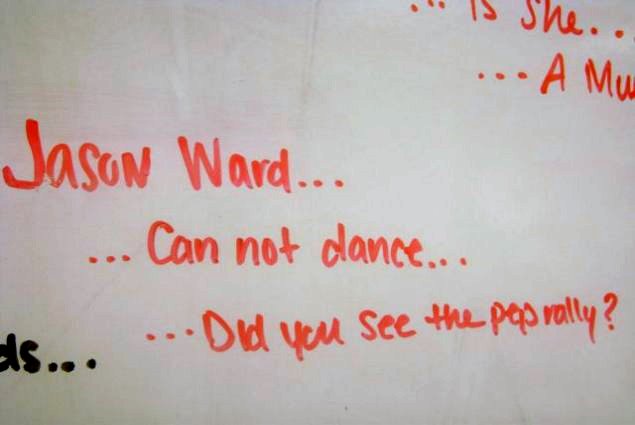 ... is she...
... A
Jason Ward...
... Can not dance...
... Did you see the pep rally?
ds...